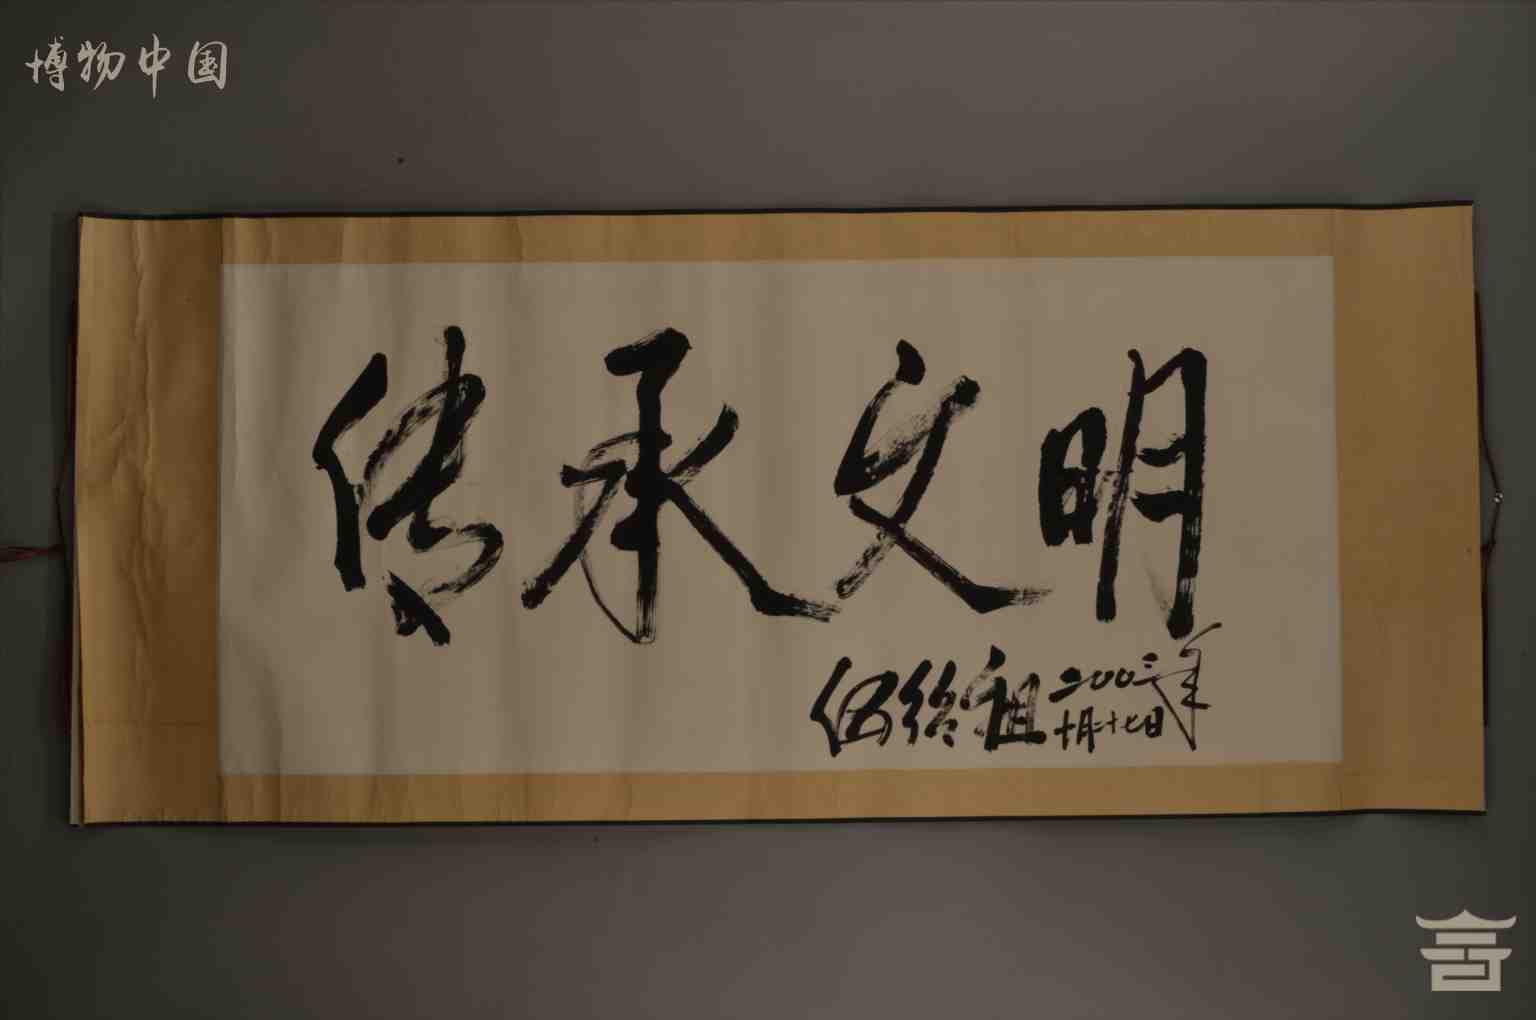 博物中国
传承文明
伍绍祖
二００三年
十月二十七日